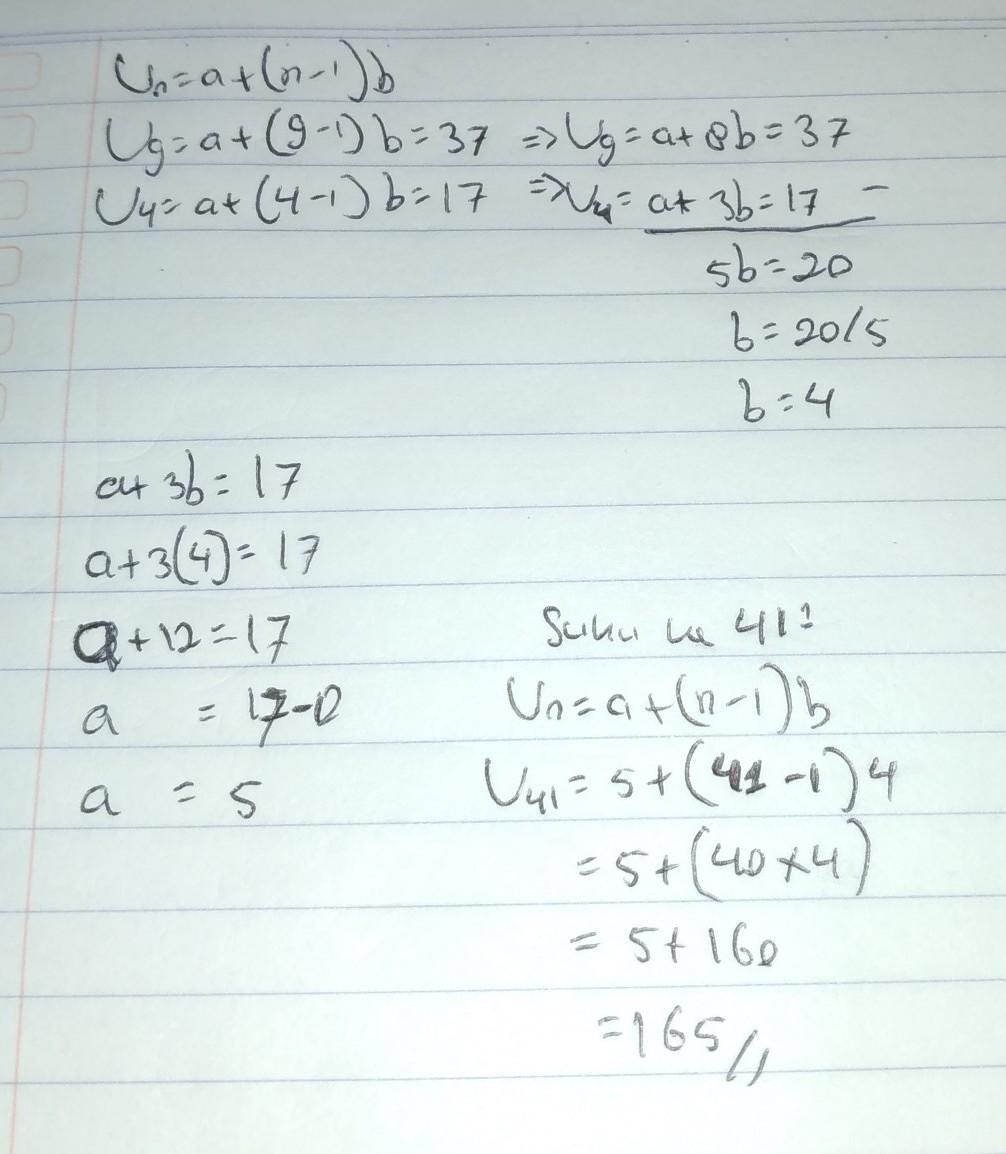 Un=a+(n-1)b
U9=a+(9-1)b=37 => U9=a+8b=37
U4=a+(4-1)b=17 => U4=a+3b=17 -
5b=20
b=20/5
b=4
a+3b=17
a+3(4)=17
a+12=17
a =
a = 5
Suku ke 41:
Un=a+(n-1)b
U41=5+(41-1)4
=5+(40×4)
=5+160
=165//